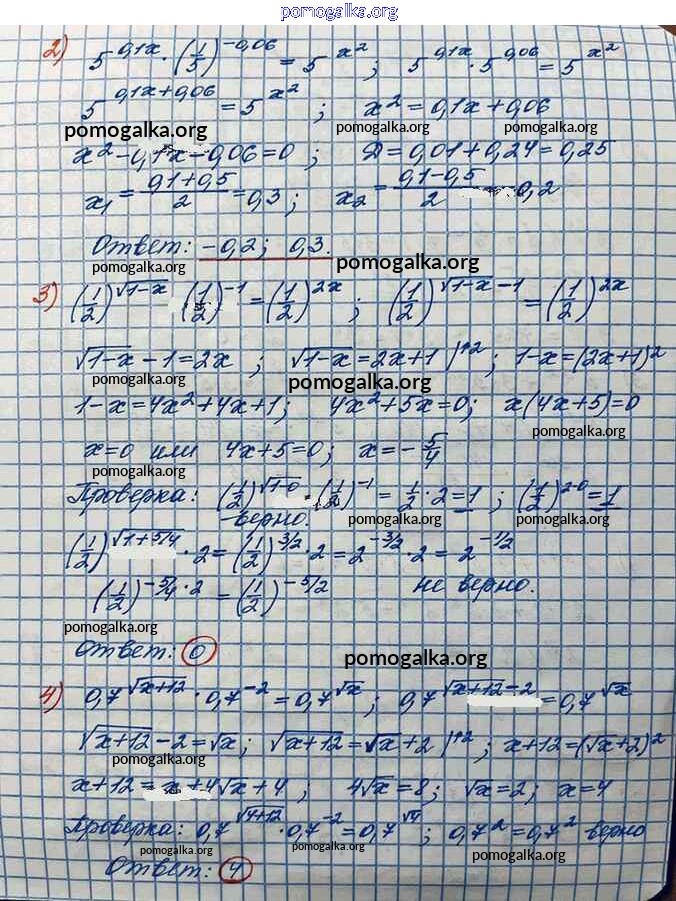 pomogalka.org
2) 5^(0,1x) · (1/5)^(-0,06) = 5^(x^2) ; 5^(0,1x) · 5^(0,06) = 5^(x^2)
5^(0,1x+0,06) = 5^(x^2) ; x^2 = 0,1x + 0,06
pomogalka.org pomogalka.org pomogalka.org
x^2 - 0,1x - 0,06 = 0 ; D = 0,01 + 0,24 = 0,25
x1 = (0,1+0,5)/2 = 0,3 ; x2 = (0,1-0,5)/2 0,2
Ответ: -0,2; 0,3.
pomogalka.org pomogalka.org
3) (1/2)^(√(1-x)) (1/2)^(-1) = (1/2)^(2x) ; (1/2)^(√(1-x) - 1) = (1/2)^(2x)
√(1-x) - 1 = 2x ; √(1-x) = 2x+1 |↑2 ; 1-x = (2x+1)^2
pomogalka.org pomogalka.org
1-x = 4x^2 + 4x + 1 ; 4x^2 + 5x = 0 ; x(4x+5) = 0
pomogalka.org
x=0 или 4x+5=0 ; x = -5/4
pomogalka.org
Проверка: (1/2)^(√(1-0)) · (1/2)^(-1) = 1/2 · 2 = 1 ; (1/2)^(2·0) = 1
- верно.
pomogalka.org pomogalka.org
(1/2)^(√(1+5/4)) · 2 = (1/2)^(3/2) · 2 = 2^(-3/2) · 2 = 2^(-1/2)
(1/2)^(-5/4 · 2) = (1/2)^(-5/2) не верно.
pomogalka.org
Ответ: 0
pomogalka.org
4) 0,7^(√(x+12)) · 0,7^(-2) = 0,7^(√x) ; 0,7^(√(x+12) - 2) = 0,7^(√x)
√(x+12) - 2 = √x ; √(x+12) = √x + 2 |↑2 ; x+12 = (√x+2)^2
pomogalka.org
x+12 = x + 4√x + 4 ; 4√x = 8 ; √x = 2 ; x = 4
pomogalka.org
Проверка: 0,7^(√(4+12)) · 0,7^(-2) = 0,7^(√4) ; 0,7^2 = 0,7^2 верно
pomogalka.org pomogalka.org pomogalka.org
Ответ: 4